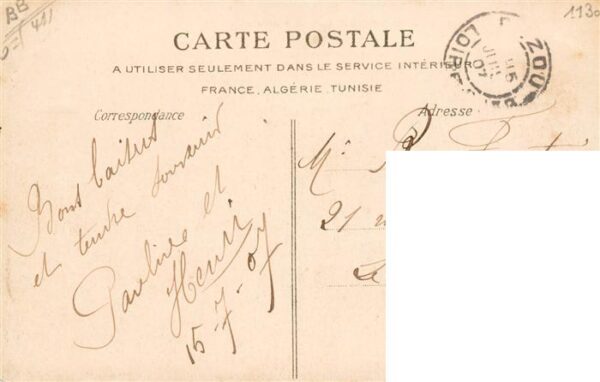 BB
411
1130
CARTE POSTALE
A UTILISER SEULEMENT DANS LE SERVICE INTÉRIEUR
FRANCE, ALGÉRIE, TUNISIE
Correspondance
Adresse
Bons baisers
et tendre souvenir
Pauline et
Henri
15-7-07
21